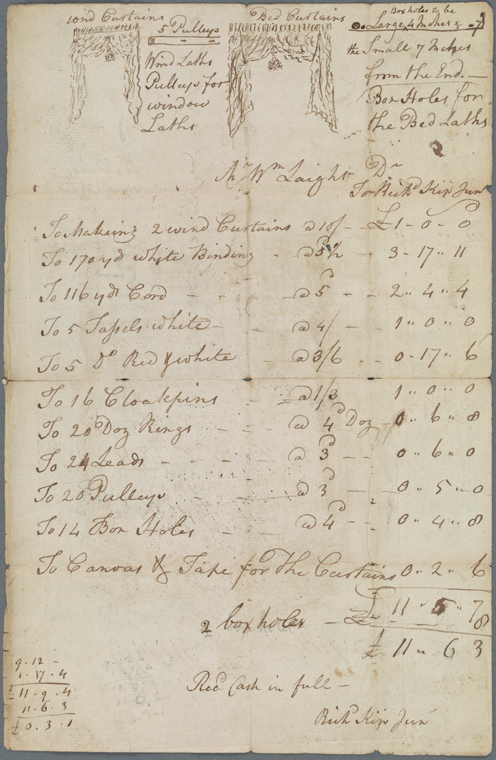 wind Curtains
5 Pulleys
Wind Laths
Pulleys for
window
Laths
Bed Curtains
Box holes to be
Large 4 Inches &
the Small 7 Inches
from the End.
Box Holes for
the Bed Laths
Mr Wm Laight Dr
To Richd Kip Junr
To Making 2 wind Curtains a 10/ - £1 - 0 - 0
To 170 yd white Binding - a 5d½ 3 - 17 - 11
To 116 yds Cord - - a 5d - - 2 " 4 " 4
To 5 Tassels white - - a 4/ 1 " 0 " 0
To 5 Do Red & white - a 3/6 - - 0 - 17 " 6
To 16 Cloakpins - a 1/3 1 " 0 " 0
To 20 Doz Rings - - a 4d Doz - 0 " 6 " 8
To 24 Leads - - - - a 3d 0 " 6 " 0
To 20 Pulleys - - - a 3d 0 " 5 " 0
To 14 Box Holes - - a 4d 0 " 4 " 8
To Canvas & Tape for The Curtains 0 " 2 " 6
£ 11 " 5 " 7
2 box holes - 8
£ 11 " 6 3
9 - 12 -
1 - 17 - 4
£ 11 - 9 - 4
11 - 6 - 3
£ 0 - 3 - 1
Recd Cash in full -
Richd Kip Junr